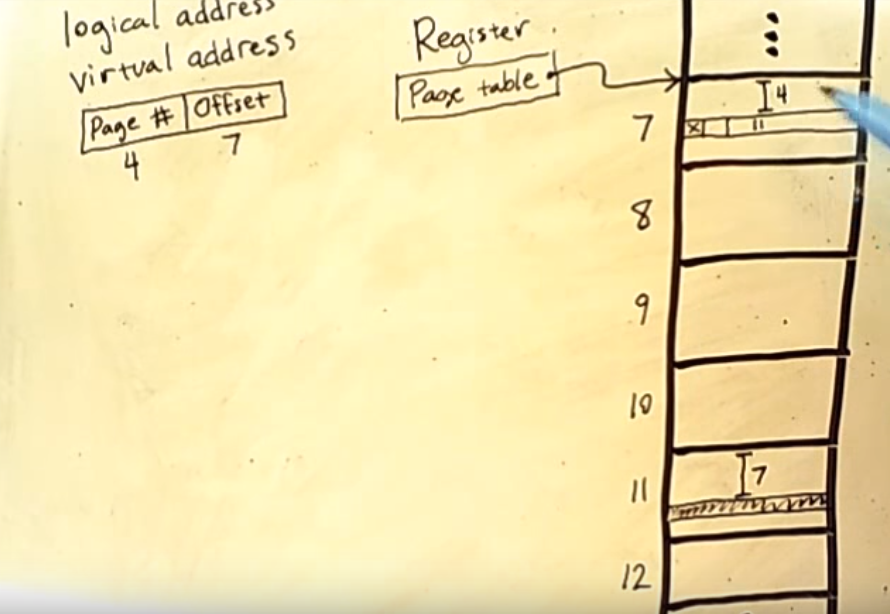 logical address
virtual address
Page # Offset
4 7
Register
Page table
4
7
x 11
8
9
10
7
11
12